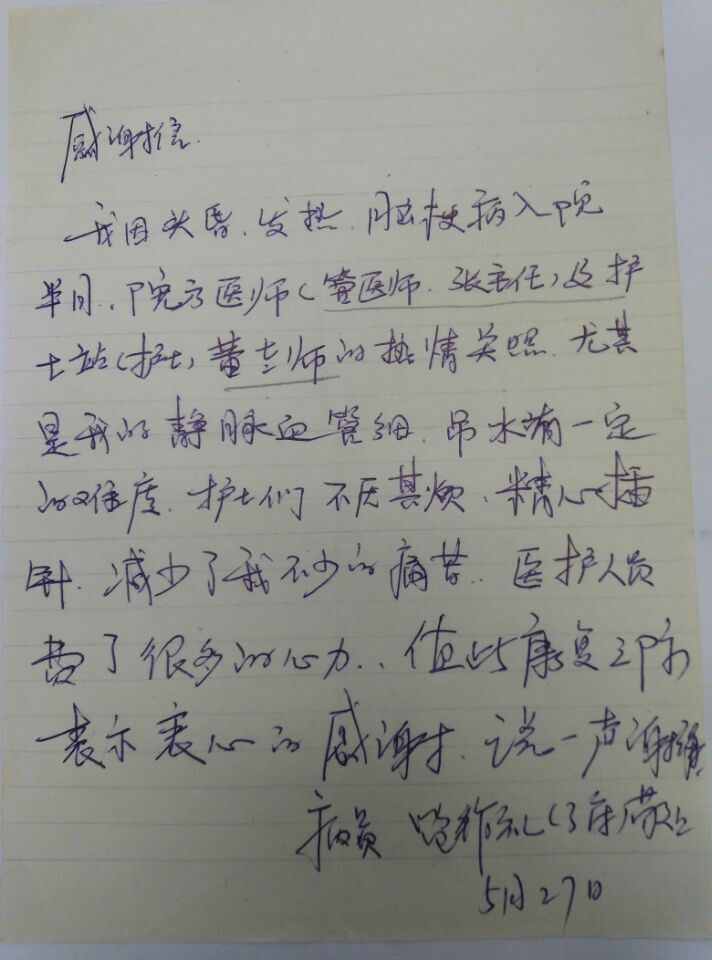 感谢信.
我因头昏、发热、脑梗病入院
半月、院方医师(管医师、张主任)及护
士站(护士)黄老师的热情关照、尤其
是我的静脉血管细、吊水有一定
的难度、护士们不厌其烦、精心插
针、减少了我不少的痛苦、医护人员
费了很多的心力、值此康复之际
表示衷心的感谢、说一声谢谢
病员
5月27日